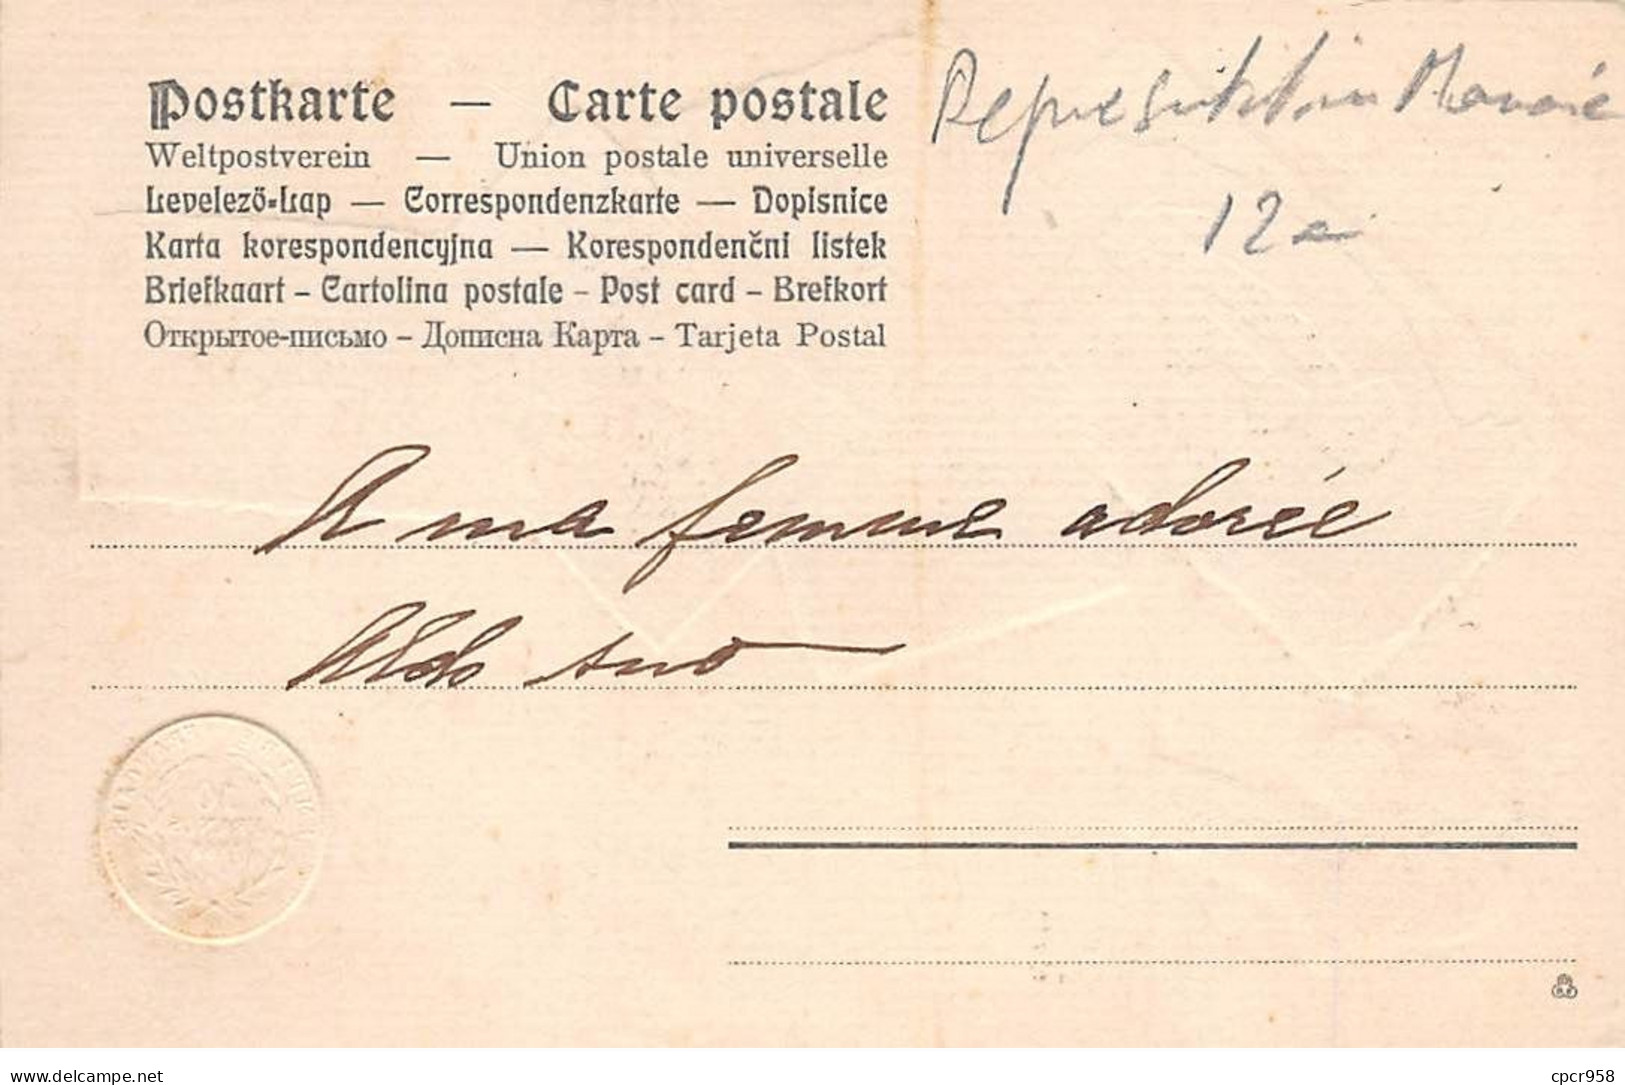 Postkarte — Carte postale
Weltpostverein — Union postale universelle
Levelező-Lap — Correspondenzkarte — Dopisnice
Karta korespondencyjna — Korespondenční listek
Briefkaart – Cartolina postale – Post card – Brefkort
Открытое-письмо – Дописна Карта – Tarjeta Postal
12
A ma femme adorée
Aldo
cpcr958